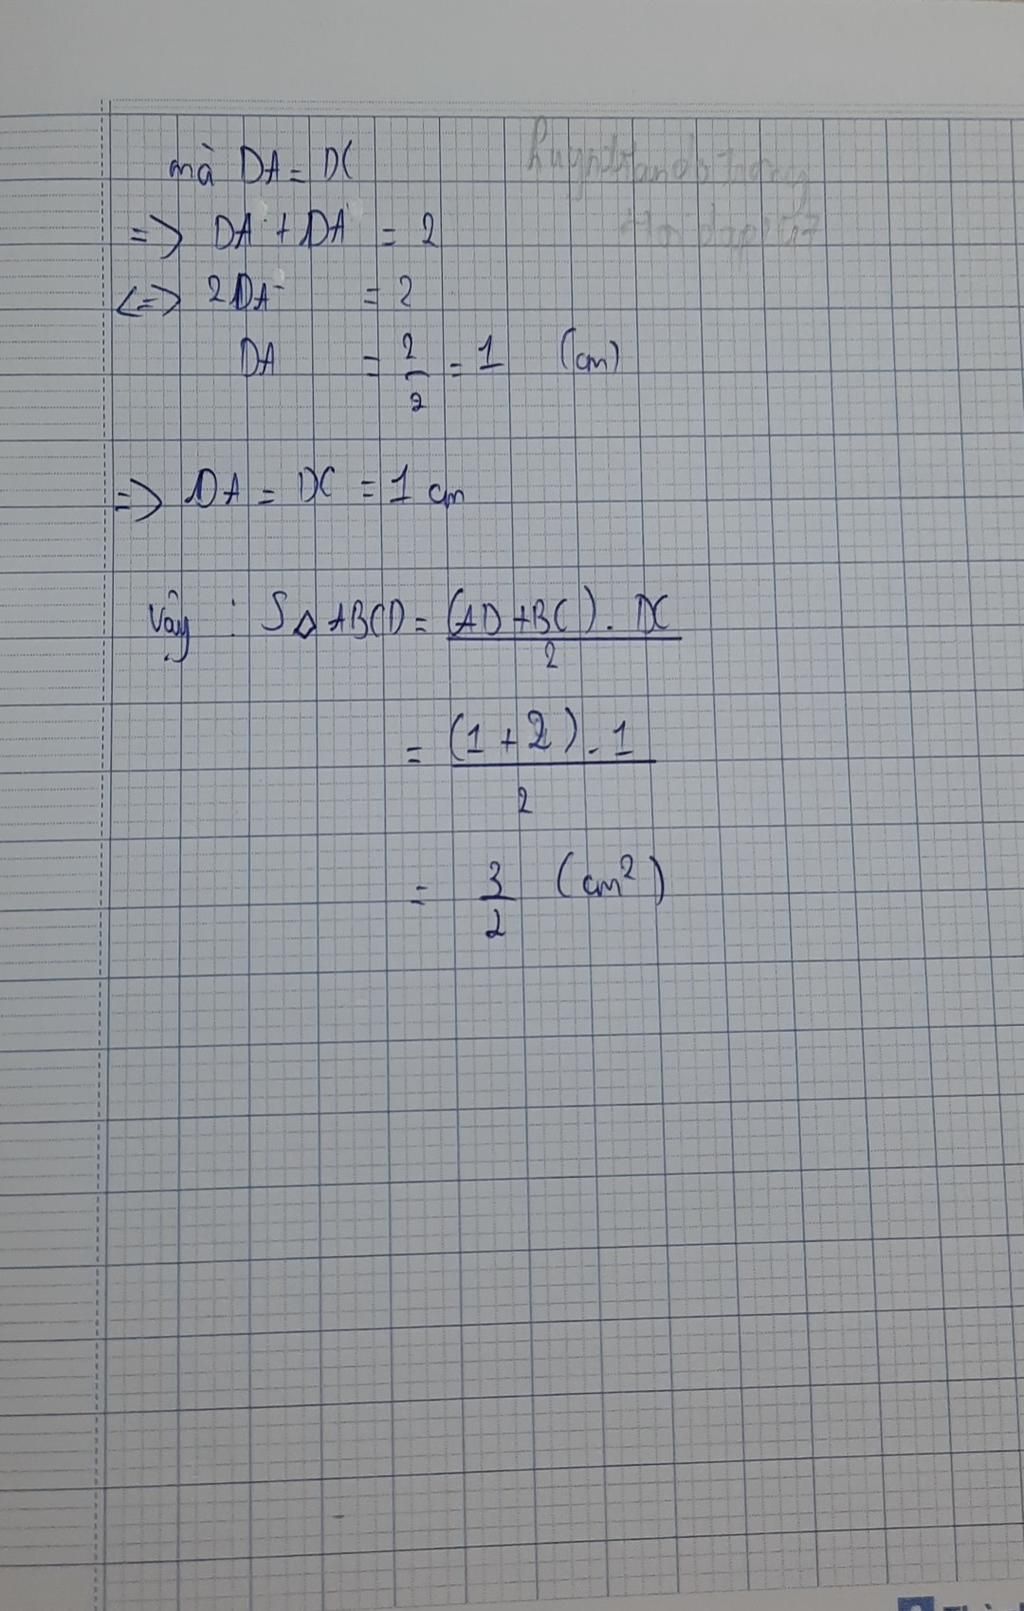 mà DA = DC
=> DA + DA = 2
<=> 2DA = 2
DA = 2/2 = 1 (cm)
=> DA = DC = 1 cm
Vậy : S△ABCD = (AD + BC) . DC / 2
= (1 + 2) . 1 / 2
= 3/2 (cm²)